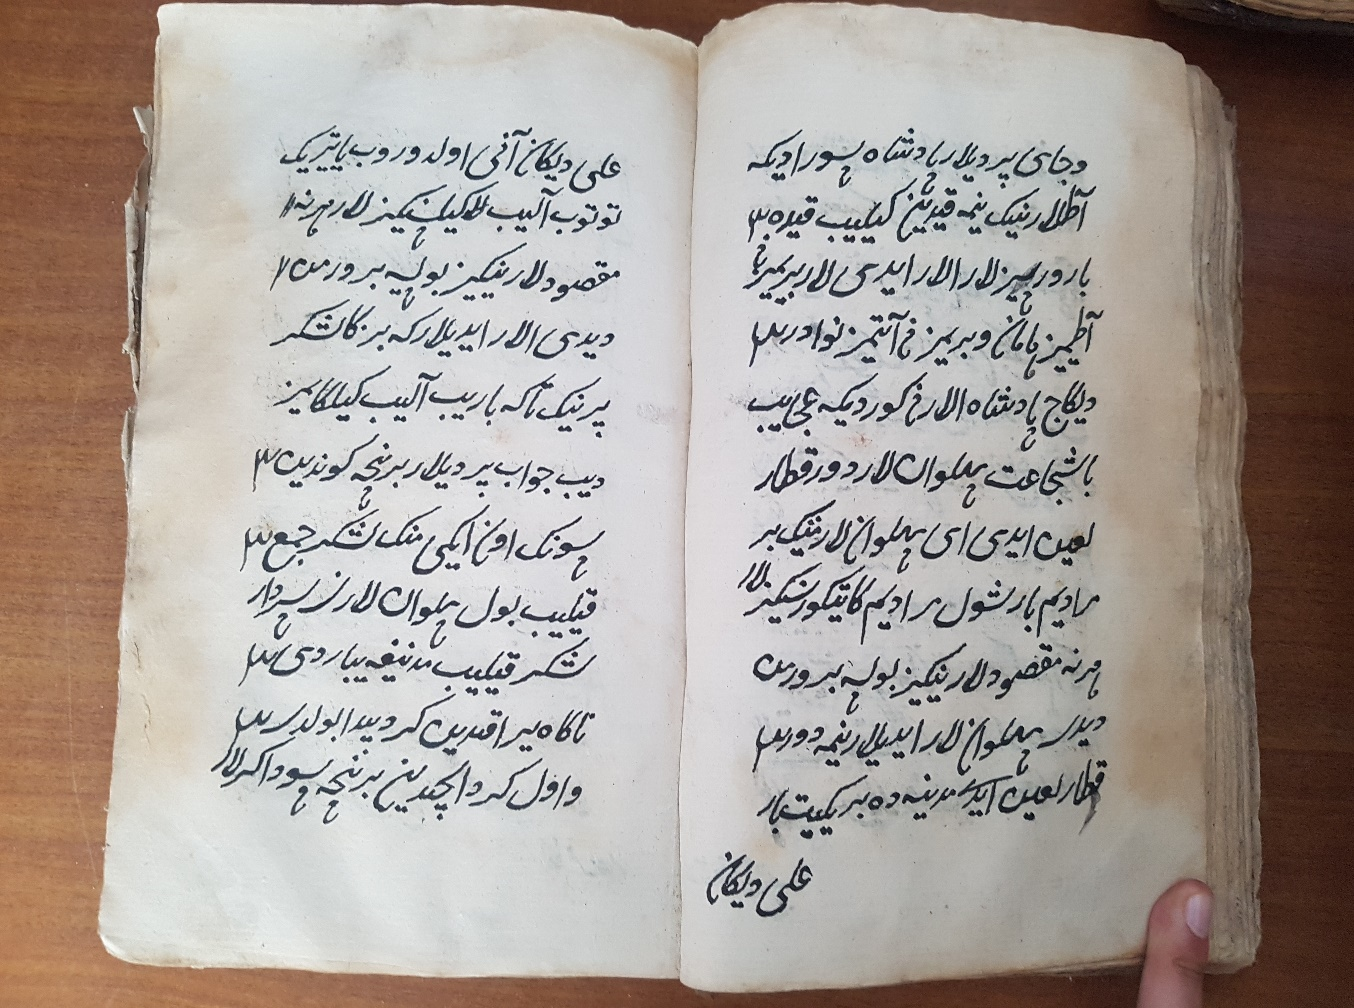 وجای بردیلار پادشاه سورادیکه
آطلارنینک نیمه قیدین کیلیب قیده
بارورسیز لار الار ایدی لار بیرمیز
آطیمیز هامان و بریمیزنی آتیمیز نوادر
دیکاج پادشاه الارنی کوردیکه عجایب
باشجاعت پهلوان لار دور قطار
لعین ایدی ای پهلوان لار منینک بر
مرادیم بار شول مرادیم کا تیکورسنکیز لار
هر نه مقصود لارینکیز بولسه بیرورمن
دیدی پهلوان لار ایدیلار نیمه دور
قطار لعین ایدی مدینه ده بر ییکیت بار
علی دیکان
علی دیکان آنی اولدوروب یا تیریک
توتوب آلیب کیلسنکیز لار هر نه
مقصود لارینکیز بولسه بیرورمن
دیدی الار ایدیلار که بزکا لشکر
بیرینک تاکه باریب آلیب کیلکایمیز
دیب جواب بردیلار بر نچه کوندین
سونک اون ایکی منک لشکر جمع
قیلیب بول پهلوان لارنی سردار
لشکر قیلیب مدینه غه یباردی
ناکاه ییراقدین کرد پیدا بولدی
و اول کرد ایچیندین بر نچه سوداکرلار